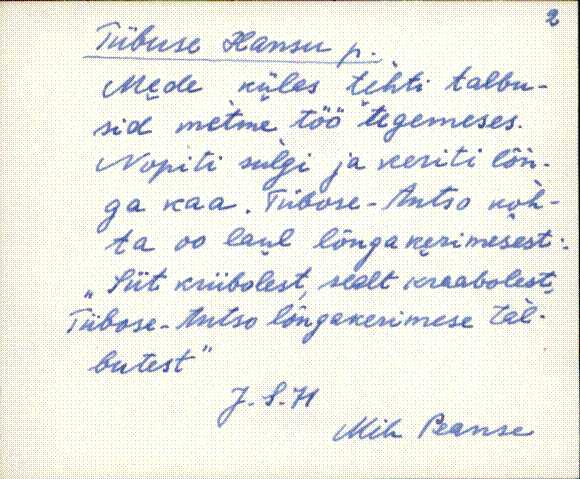 2
Tiibuse Hansu p.
Mede küläs tehti talbu-
sid mètme töö tegemeses.
Nopiti sulgi ja keriti lõn-
ga kaa. Tiibose-Antso koh-
ta oo laul lõngakerimesest:
„Siit kriibolest, sealt kraabolest,
Tiibose-Antso lõngakerimese tal-
butest"
J. S. H
Mih Peanse